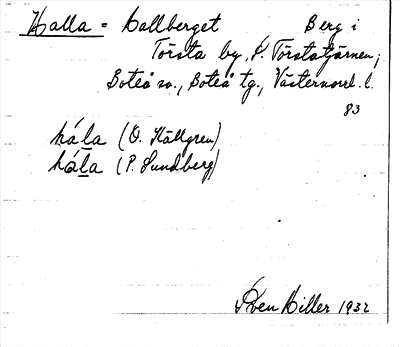 Halla = hallberget Berg i
Torsta by, V. Torstatjärnen,
Boteå sn., Boteå tg., Västernorrl. l.
83
hála (O. Källgren)
hála (P. Sundberg)
Sven Hiller 1932